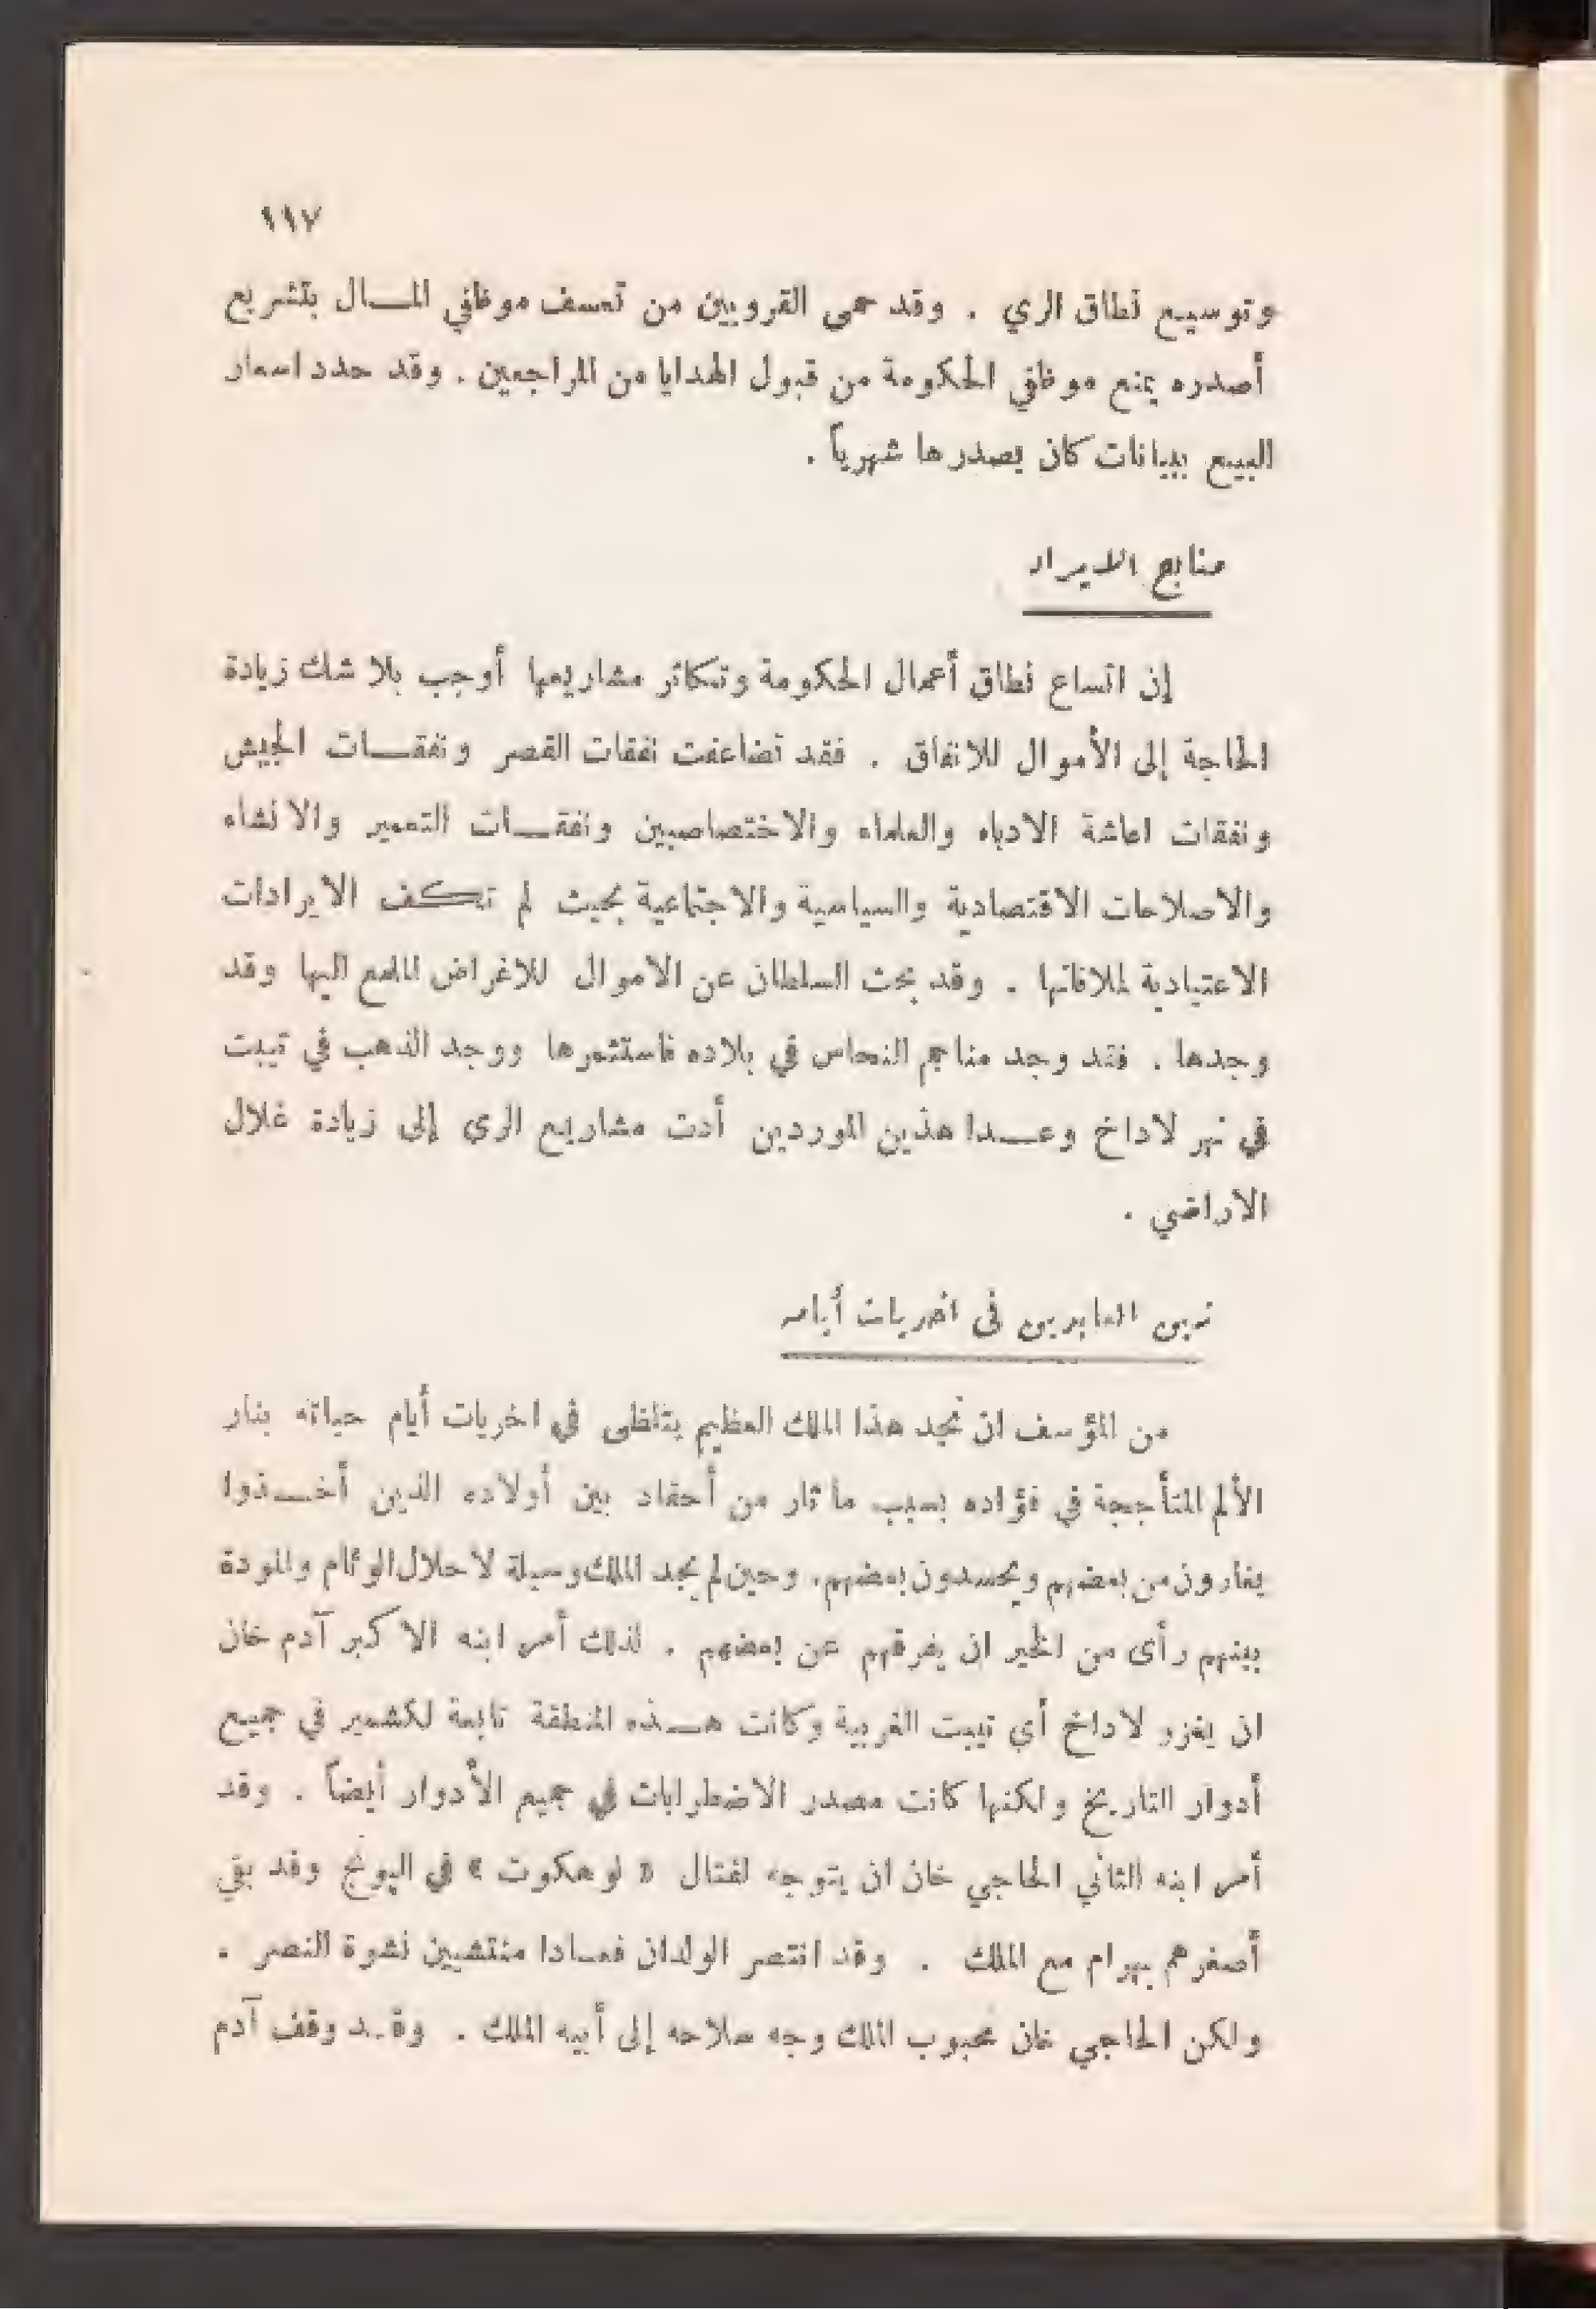 ١١٧
وتوسيع نطاق الري . وقد حمى القرويين من تعسف موظفي المال بتشريع
أصدره يمنع موظفي الحكومة من قبول الهدايا من المراجعين . وقد حدد اسعار
البيع ببيانات كان يصدرها شهرياً .
منابع الايراد
إن اتساع نطاق أعمال الحكومة وتكاثر مشاريعها أوجب بلا شك زيادة
الحاجة إلى الأموال للانفاق . فقد تضاعفت نفقات القصر ونفقات الجيش
ونفقات اعاشة الادباء والعلماء والاختصاصيين ونفقات التعمير والانشاء
والاصلاحات الاقتصادية والسياسية والاجتماعية بحيث لم تكف الايرادات
الاعتيادية لملافاتها . وقد بحث السلطان عن الاموال للاغراض الملمع اليها وقد
وجدها . فقد وجد مناجم النحاس في بلاده فاستثمرها ووجد الذهب في تيبت
في نهر لاداخ وعدا هذين الموردين أدت مشاريع الري إلى زيادة غلال
الاراضي .
زين العابدين في اخريات أيامه
من المؤسف ان نجد هذا الملك العظيم يتلظى في اخريات أيام حياته بنار
الألم المتأججة في فؤاده بسبب ما ثار من أحقاد بين أولاده الذين أخذوا
يغارون من بعضهم ويحسدون بعضهم. وحين لم يجد الملك وسيلة لاحلال الوئام والمودة
بينهم رأى من الخير ان يفرقهم عن بعضهم . لذلك أمر ابنه الاكبر آدم خان
ان يغزو لاداخ أي تيبت الغربية وكانت هذه المنطقة تابعة لكشمير في جميع
أدوار التاريخ ولكنها كانت مصدر الاضطرابات في جميع الأدوار أيضاً . وقد
أمر ابنه الثاني الحاجي خان ان يتوجه لقتال « لوهكوت » في البونج وقد بقي
أصغرهم بهرام مع الملك . وقد انتصر الولدان فعادا منتشيين نشوة النصر .
ولكن الحاجي خان محبوب الملك وجه سلاحه إلى أبيه الملك . وقد وقف آدم